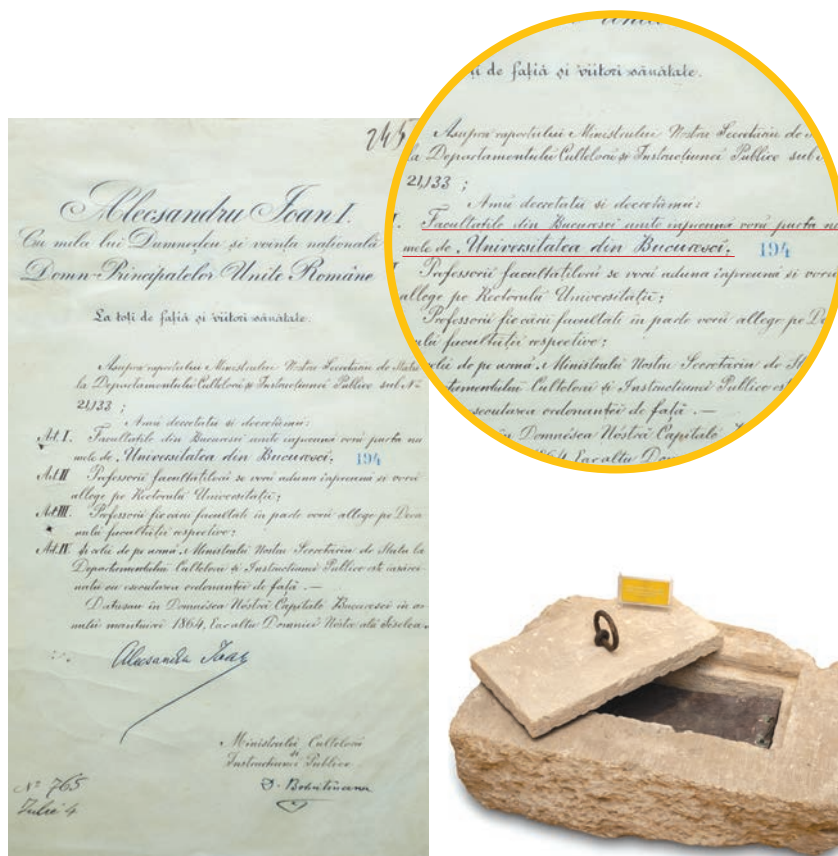 245
Alecsandru Ioan I.
Cu mila lui Dumnedeu si voința națională
Domn Principatelor Unite Române
La toti de fatiă si viitori sănătate.
Asupra raportului Ministrului Nostru Secretariu de Statu
la Departamentulu Cultelorŭ si Instructiunei Publice sub Nº
21,133 ;
Amŭ decretatu si decretămŭ:
Art. I. Facultatile din Bucuresci unite inpreună vorŭ purta nu
mele de „Universitatea din Bucuresci. 194
Art. II Professorii facultatilorŭ se vorŭ aduna inpreună si vorŭ
allege pe Rectorulŭ Universitatii;
Art. III. Professorii fie cării facultati in parte vorŭ allege pe Deca
nulŭ facultății respective;
Art. IV. Ministrulŭ Nostru Secretariu de Statu la
Departamentulu Cultelorŭ si Instructiunei Publice este insărci
natu cu esecutarea ordonantei de fată. —
Datusau in Domnésca Nóstră Capitală Bucuresci in a
nulŭ mantuirei 1864, Eara altu Domniei Nóstre alŭ Siselea.
Alecsandru Ioan
Ministrulu Cultelorŭ
si
Instructiunei Publice
D. Bolintineanu
Nº 765
Iulie 4
ti de fatiă si viitori sănătate.
Asupra raportului Ministrului Nostru Secretariu de
la Departamentulu Cultelorŭ si Instructiunei Publice sub
21,133 ;
Amŭ decretatu si decretămŭ:
I. Facultatile din Bucuresci unite inpreună vorŭ purta nu
mele de „Universitatea din Bucuresci. 194
Professorii facultatilorŭ se vorŭ aduna inpreună si vorŭ
allege pe Rectorulŭ Universitatii;
Professorii fie cării facultati in parte vorŭ allege pe De
nulŭ facultății respective;
Ministrulŭ Nostru Secretariu de Statu
Cultelorŭ si Instructiunei Publice est
esecutarea ordonantei de fată. —
Domnésca Nóstră Capitală
1864, Eara altu